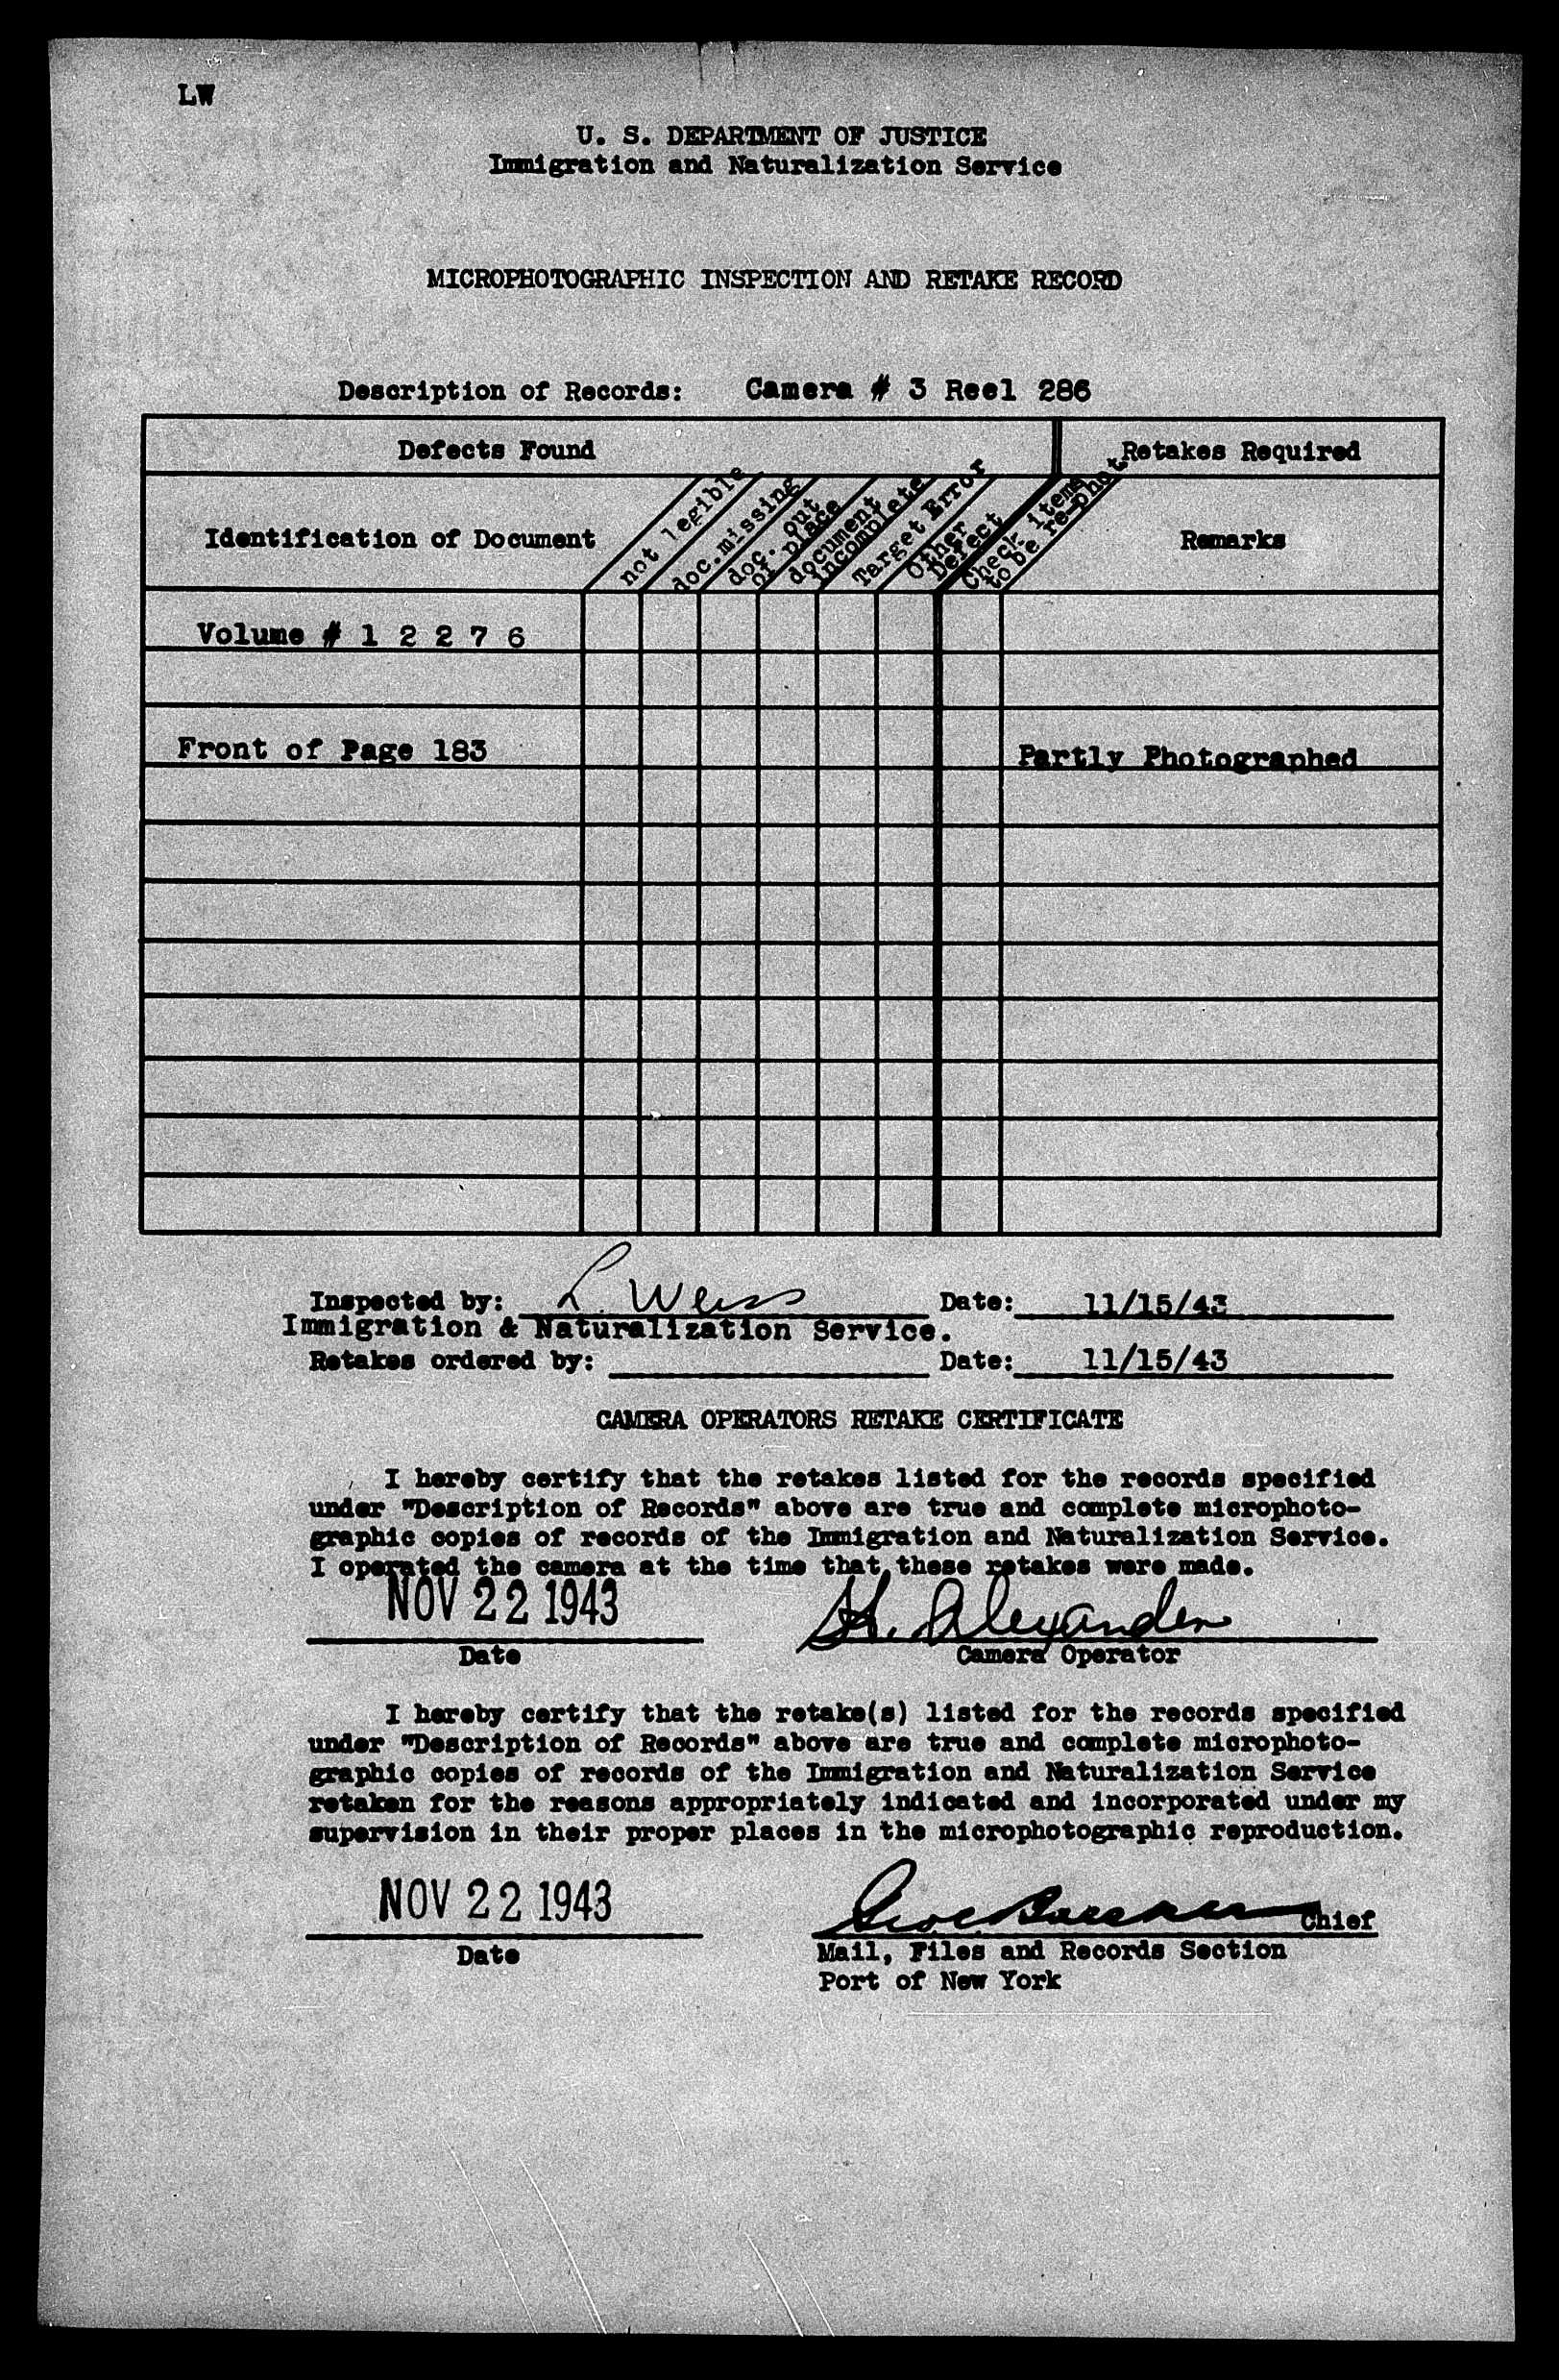 LW
U. S. DEPARTMENT OF JUSTICE
Immigration and Naturalization Service
MICROPHOTOGRAPHIC INSPECTION AND RETAKE RECORD
Description of Records: Camera # 3 Reel 286
Defects Found
Retakes Required
Identification of Document
not legible
doc.missing
doc. out
of place
document
incomplete
Target Error
Other
Defect
Check items
to be re-phot
Remarks
Volume # 1 2 2 7 6
Front of Page 183
Partly Photographed
Inspected by: L. Weiss Date: 11/15/43
Immigration & Naturalization Service.
Retakes ordered by: Date: 11/15/43
CAMERA OPERATORS RETAKE CERTIFICATE
I hereby certify that the retakes listed for the records specified
under "Description of Records" above are true and complete microphoto-
graphic copies of records of the Immigration and Naturalization Service.
I operated the camera at the time that these retakes were made.
NOV 22 1943 H. Alexander
Date Camera Operator
I hereby certify that the retake(s) listed for the records specified
under "Description of Records" above are true and complete microphoto-
graphic copies of records of the Immigration and Naturalization Service
retaken for the reasons appropriately indicated and incorporated under my
supervision in their proper places in the microphotographic reproduction.
NOV 22 1943
Chief
Date
Mail, Files and Records Section
Port of New York